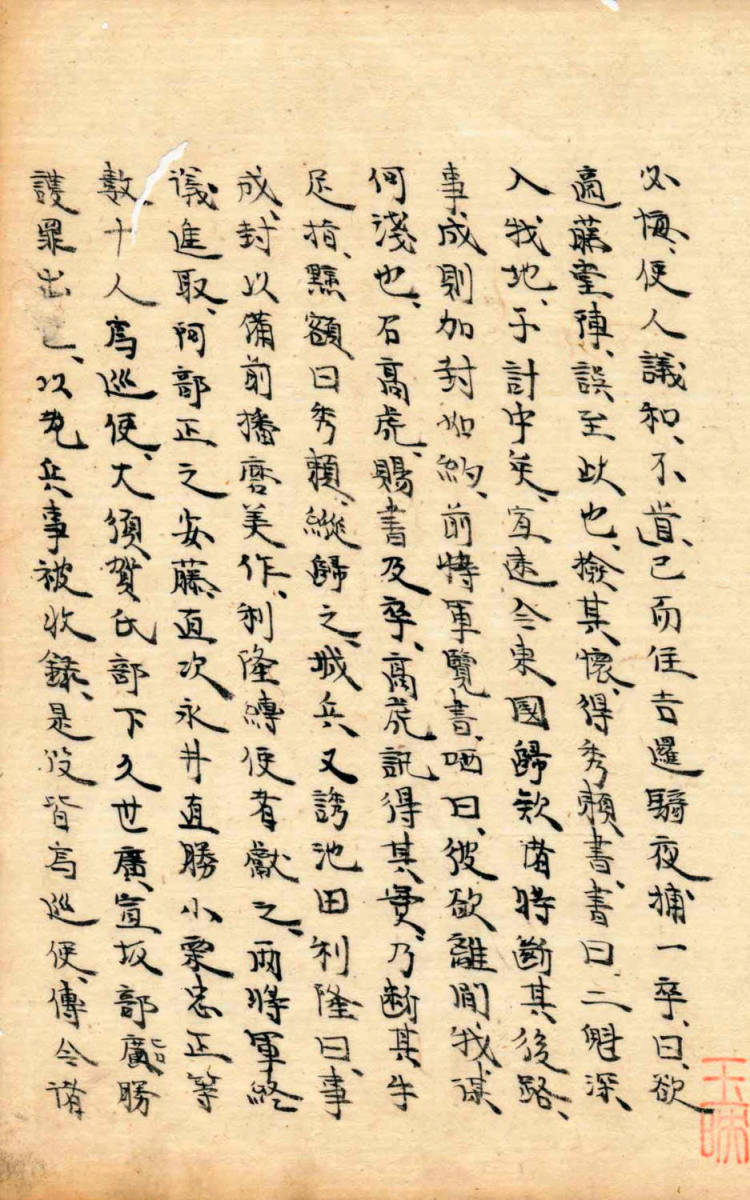 必悔、使人議和、不肯、已而住吉邏騎夜捕一卒、曰、欲
適藤堂陣、誤至此也、撿其懷、得秀頼書、書曰、二魁深
入我地、予計中矣、宜速令東國歸欵諸將斷其後路、
事成則加封如約、前將軍覽書、哂曰、彼欲離間、我謀
何淺也、召高虎、賜書及卒、高虎訊得其實、乃斷其手
足指、黥額曰秀頼、縱歸之、城兵又誘池田利隆曰、事
成、封以備前播磨美作、利隆縛使者獻之、兩將軍終
議進取、阿部正之安藤直次永井直勝小栗忠正等
數十人爲巡使、大須賀氏部下久世廣宣坂部廣勝
護罪出、以先兵事被收錄、是役皆爲巡使、傳令諸